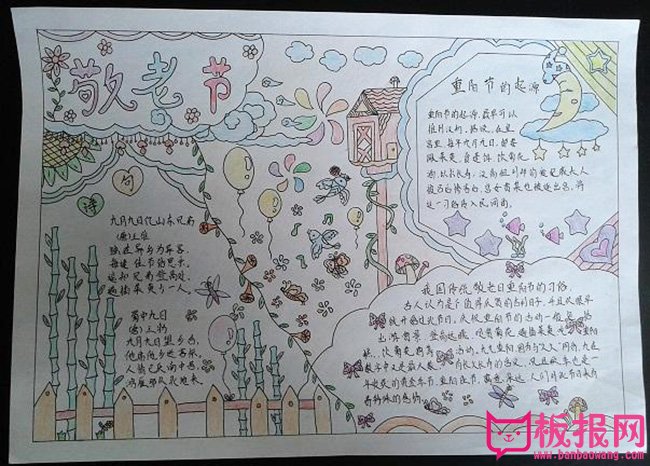 敬老节
诗句
九月九日忆山东兄弟
(唐)王维
独在异乡为异客,
每逢佳节倍思亲。
遥知兄弟登高处,
遍插茱萸少一人。
蜀中九日
(唐)王勃
九月九日望乡台,
他席他乡送客杯。
人情已厌南中苦,
鸿雁那从北地来。
重阳节的起源
重阳节的起源,最早可以
推到汉初。据说,在皇
宫里,每年九月九日,都要
佩茱萸,食蓬饵,饮菊花
酒,以求长寿;汉高祖刘邦的爱妃戚夫人
被吕后惨害后,宫女贾某也被逐出宫,将
这一习俗传入民间。
我国传统敬老日重阳节的习俗
古人认为是个值得庆贺的吉利日子,并且从很早
就开始过此节日。庆祝重阳节的活动一般包
出游赏景、登高远眺、观赏菊花、遍插茱萸、
糕、饮菊花酒等活动。九九重阳,因为与"久久"同音,九在
数字中又是最大数,有长久长寿的含意,况且秋季也是一
年收获的黄金季节,重阳佳节,寓意深远,人们对此节历来有
着特殊的感情。
板报网
www.banbaowang.com